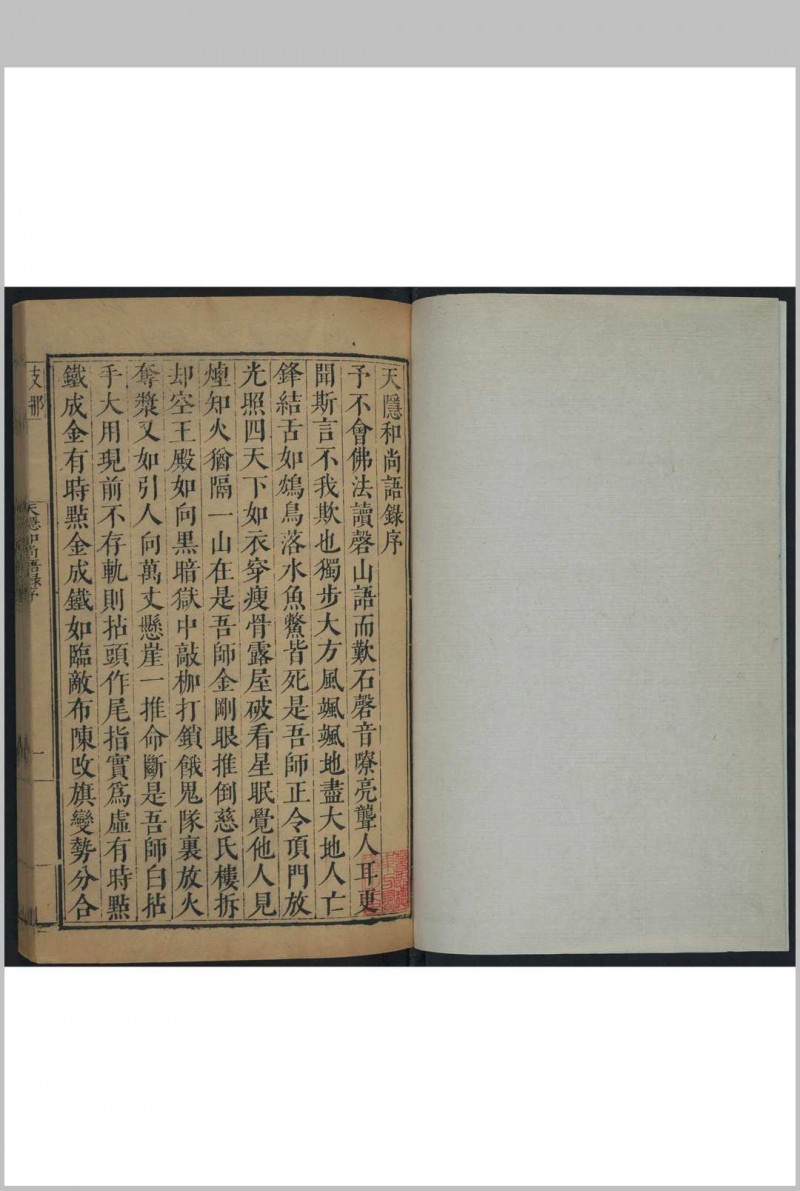 天隱和尚語錄序
予不會佛法讀磬山語而歎石磬音嘹亮聾人耳更
聞斯言不我欺也獨步大方風颯颯地盡大地人亡
鋒結舌如鴆鳥落水魚鱉皆死是吾師正令頂門放
光照四天下如衣穿瘦骨露屋破看星眠覺他人見
煙知火猶隔一山在是吾師金剛眼推倒慈氏樓拆
却空王殿如向黑暗獄中敲枷打鎖餓鬼隊裏放火
奪漿又如引人向萬丈懸崖一推命斷是吾師白拈
手大用現前不存軌則拈頭作尾指實爲虛有時點
鐵成金有時點金成鐵如臨敵布陳改旗變勢分合
支那
天隱和尚語錄序
一